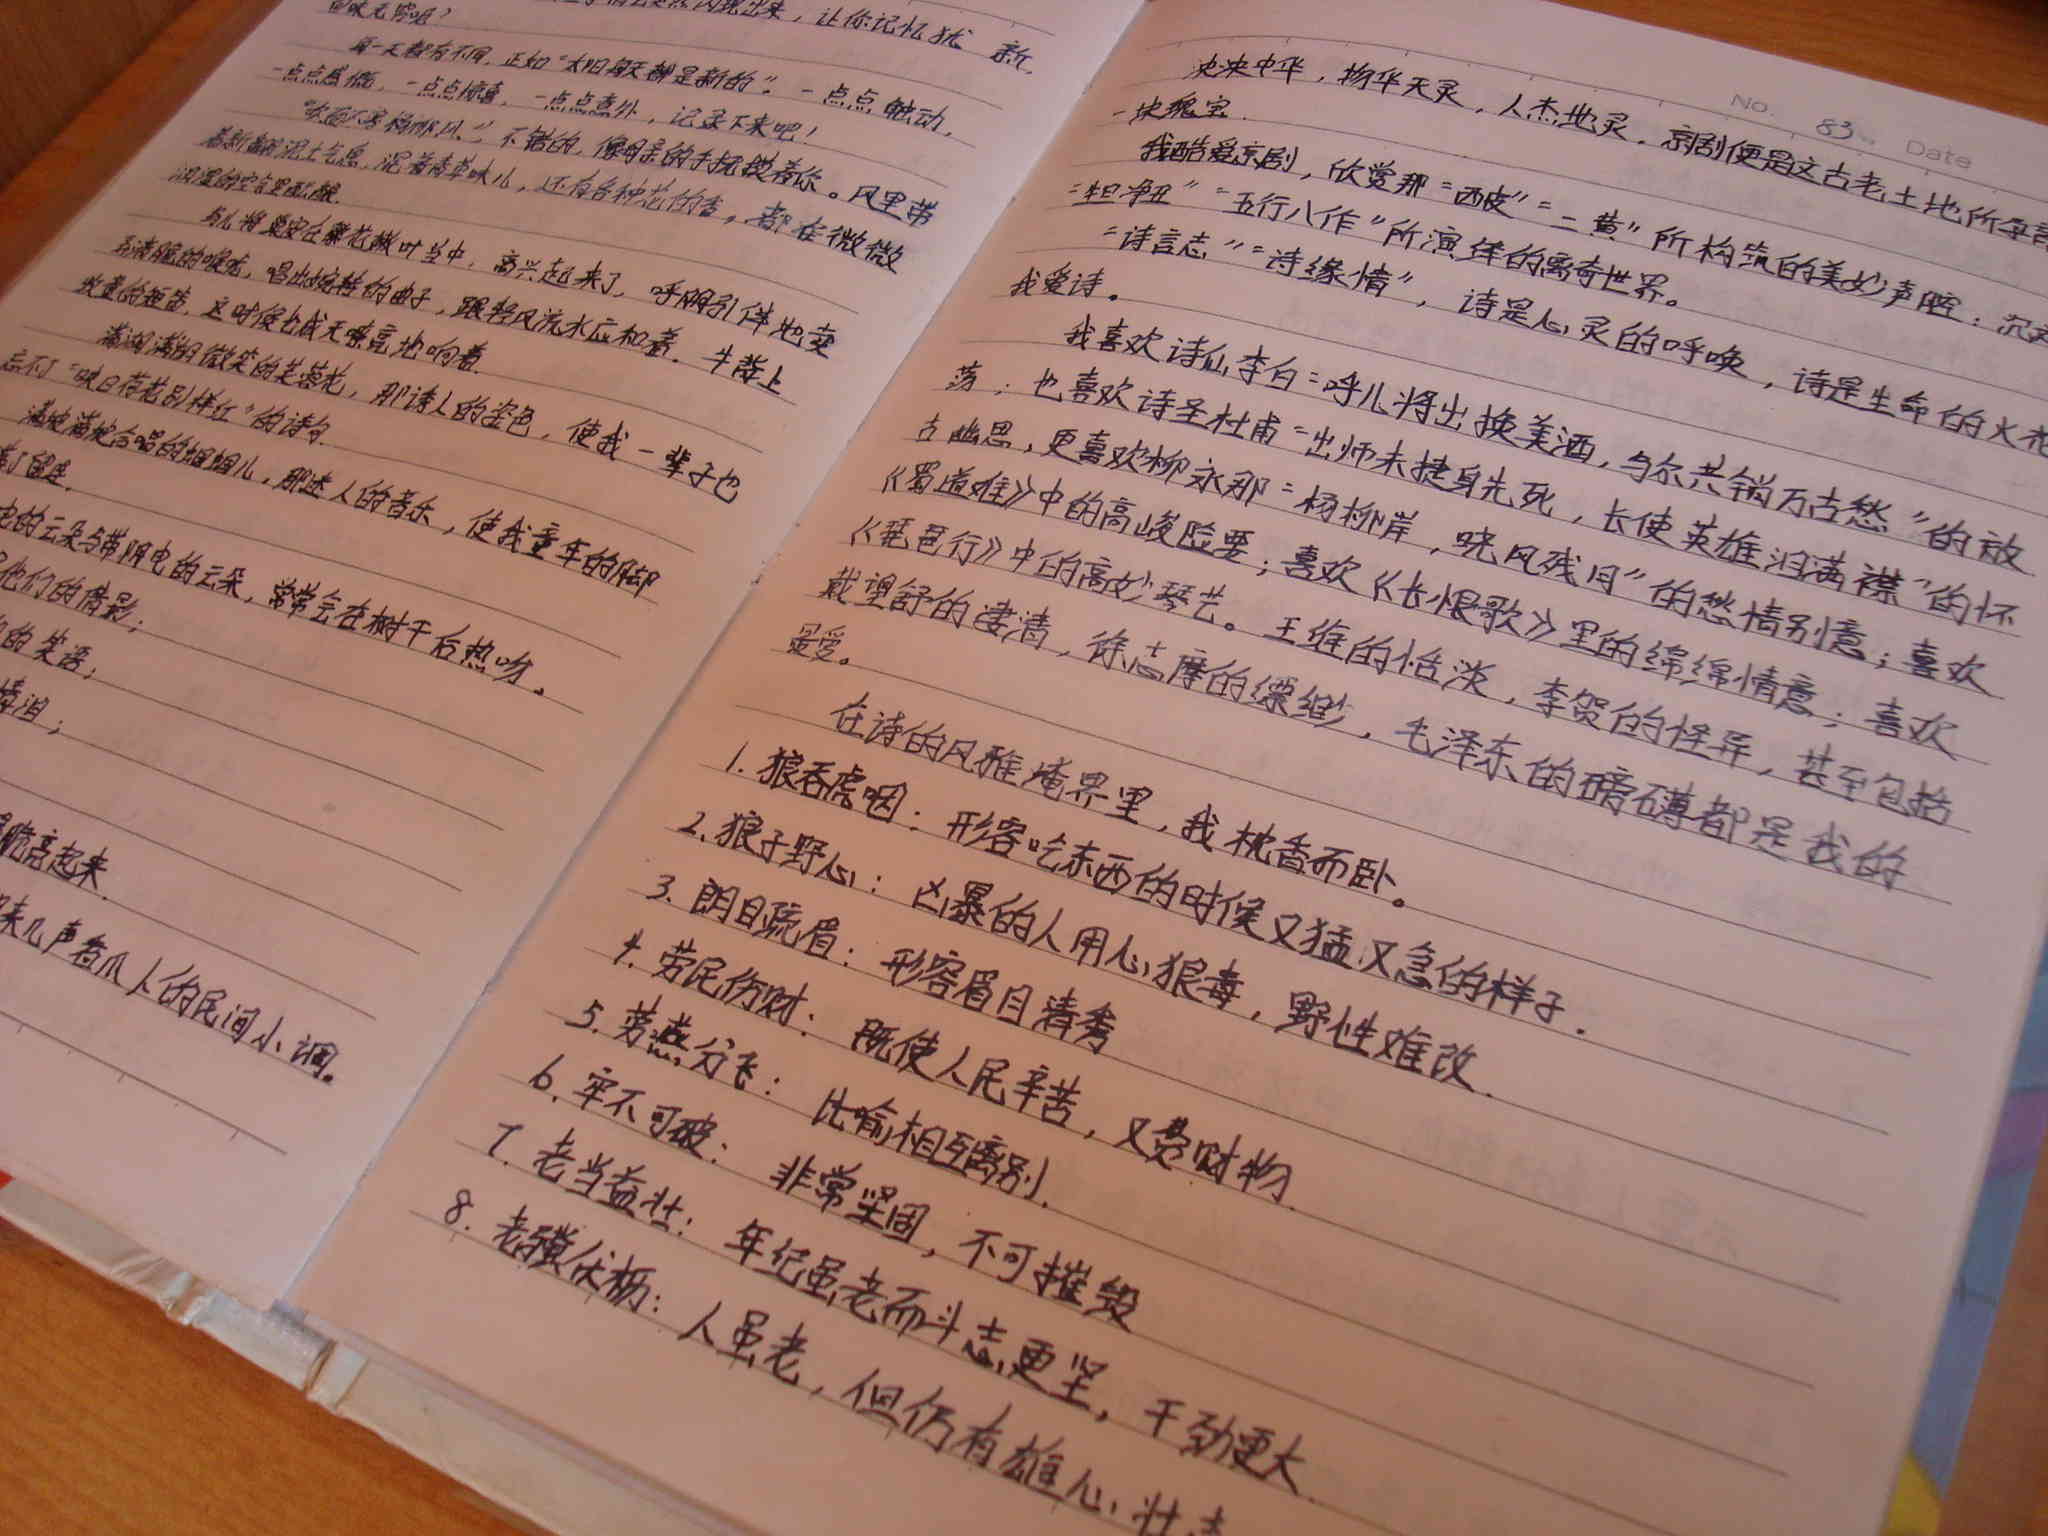 让你记忆犹新,
回味无穷呢?
每一天都有不同,正如“太阳每天都是新的”。一点点触动,
一点点感慨,一点点惊喜,一点点意外,记录下来吧!
“吹面不寒杨柳风”,不错的,像母亲的手抚摸着你。风里带
着新翻的泥土气息,混着青草味儿,还有各种花的香,都在微微
润湿的空气里酝酿.
鸟儿将巢安在繁花嫩叶当中,高兴起来了,呼朋引伴地卖
弄清脆的喉咙,唱出婉转的曲子,跟轻风流水应和着。牛背上
牧童的短笛,这时候也成天嘹亮地响着.
满湖满湖微笑的芙蓉花,那诗人的姿色,使我一辈子也
忘不了“映日荷花别样红”的诗句.
满坡满坡合唱的蝈蝈儿,那迷人的音乐,使我童年的脚
了留连.
电的云朵与带阴电的云朵,常常会在树干后热吻。
他们的倩影;
的笑语;
情泪;
脆亮起来.
来几声卷爪人的民间小调。
NO. 83 Date
泱泱中华,物华天灵,人杰地灵.京剧便是这古老土地所孕育
一块瑰宝.
我酷爱京剧,欣赏那“西皮”“二黄”所构筑的美妙声腔;沉
“生旦净丑”“五行八作”所演绎的离奇世界。
“诗言志”“诗缘情”,诗是心灵的呼唤,诗是生命的火花
我爱诗。
我喜欢诗仙李白“呼儿将出换美酒,与尔共销万古愁”的放
荡;也喜欢诗圣杜甫“出师未捷身先死,长使英雄泪满襟”的怀
古幽思,更喜欢柳永那“杨柳岸,晓风残月”的愁情别意;喜欢
《蜀道难》中的高峻险要;喜欢《长恨歌》里的绵绵情意;喜欢
《琵琶行》中的高妙琴艺。王维的恬淡,李贺的怪异,甚至包括
戴望舒的凄清,徐志摩的缥缈,毛泽东的磅礴都是我的
最爱。
在诗的风雅掩界里,我枕香而卧。
1.狼吞虎咽:形容吃东西的时候又猛又急的样子.
2.狼子野心:凶暴的人用心狠毒,野性难改.
3.朗目疏眉:形容眉目清秀
4.劳民伤财:既使人民辛苦,又费财物.
5.劳燕分飞:比喻相互离别.
6.牢不可破:非常坚固,不可摧毁
7.老当益壮:年纪虽老而斗志更坚,干劲更大.
8.老骥伏枥:人虽老,但仍有雄心壮志